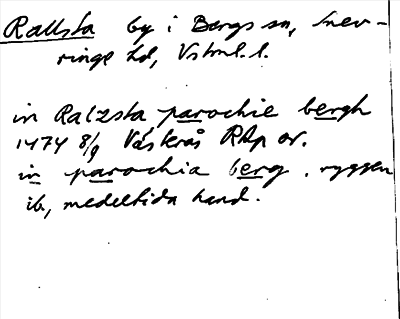 Rallsta by i Bergs sn, Snev-
ringe hd, Vstml. l.
in Ralzsta parochie bergh
1474 8/9 Västerås RAp or.
in parochia berg . ryggen
ib, medeltida hand.